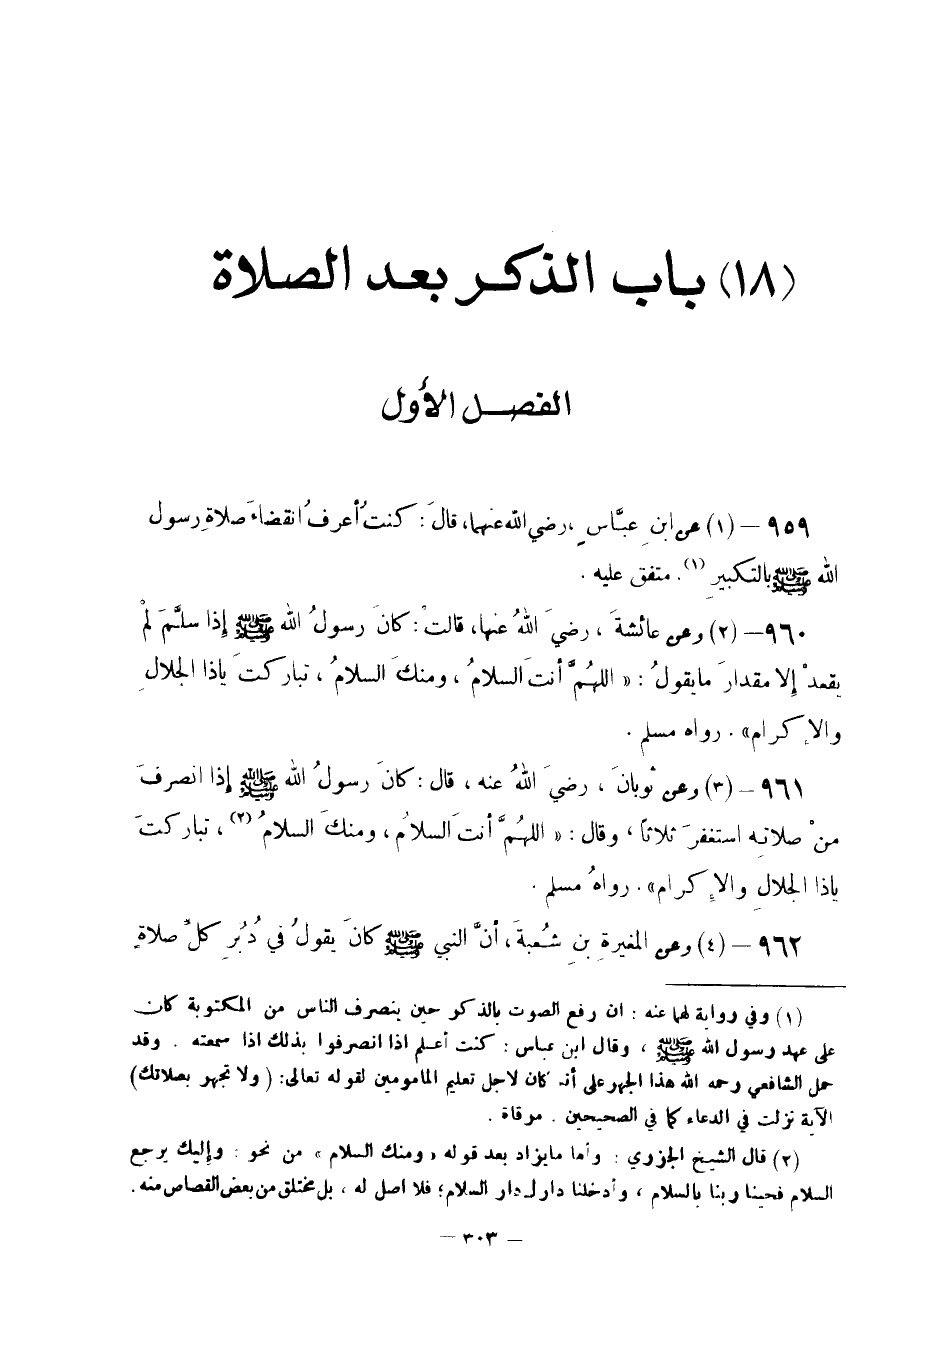 (١٨) باب الذكر بعد الصلاة
الفصل الأول
٩٥٩ – (١) عن ابنِ عبَّاسٍ ، رضي الله عنهما، قالَ : كنتُ أعرفُ انقضاءَ صلاةِ رسول
الله ﷺ بالتكبيرِ (١). متفق عليه .
٩٦٠ – (٢) وعن عائشةَ ، رضيَ اللهُ عنها، قالتْ : كانَ رسولُ الله ﷺ إذا سلَّمَ لمْ
يقعدْ إلا مقدارَ مايقولُ : « اللهُمَّ أنتَ السلامُ ، ومنكَ السلامُ ، تباركتَ ياذا الجلالِ
والإكرام» . رواه مسلم .
٩٦١ – (٣) وعن ثوبانَ ، رضيَ اللهُ عنه ، قال : كانَ رسولُ الله ﷺ إذا انصرفَ
منْ صلاتِه استغفرَ ثلاثاً ، وقال : « اللهُمَّ أنتَ السلامُ ، ومنكَ السلامُ (٢) ، تباركتَ
ياذا الجلالِ والإكرام» . رواهُ مسلم .
٩٦٢ – (٤) وعن المغيرةِ بنِ شُعبةَ ، أنَّ النبي ﷺ كانَ يقولُ في دُبُرِ كلِّ صلاةٍ
(١) وفي رواية لهما عنه : ان رفع الصوت بالذكر حين ينصرف الناس من المكتوبة كان
على عهد رسول الله ﷺ ، وقال ابن عباس : كنت أعلم اذا انصرفوا بذلك اذا سمعته . وقد
حمل الشافعي رحمه الله هذا الجهر على أنه كان لاجل تعليم المامومين لقوله تعالى: ( ولا تجهر بصلاتك)
الآية نزلت في الدعاء كما في الصحيحين . مرقاة .
(٢) قال الشيخ الجزري : وأما مايزاد بعد قوله « ومنك السلام » من نحو : وإليك يرجع
السلام فحينا ربنا بالسلام ، وأدخلنا دارك دار السلام؛ فلا اصل له ، بل مختلق من بعض القصاص منه .
– ٣٠٣ –